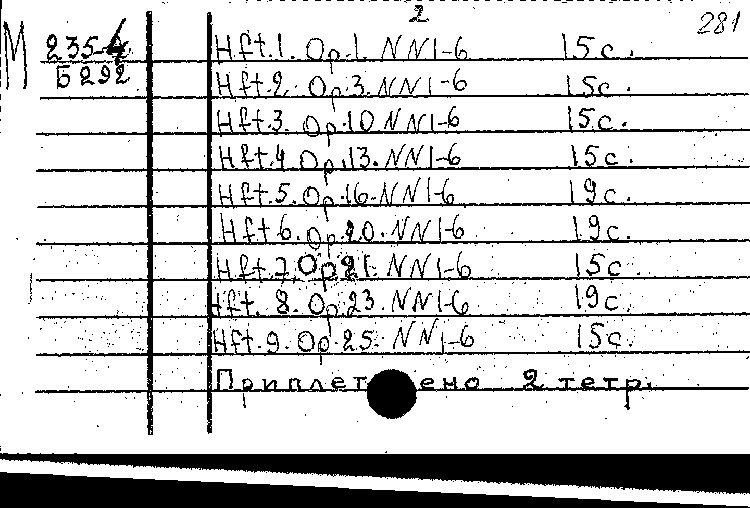 2
281
М 235-4 Hft.1. Op.1. NN1-6 15с.
Б292 Hft.2. Op.3. NN1-6 15с.
Hft.3. Op.10 NN1-6 15с.
Hft.4 Op.13. NN1-6 15с.
Hft.5. Op.16. NN1-6 19с.
Hft 6. Op.20. NN1-6 19с.
Hft.7. Op.21. NN1-6 15с
Hft. 8. Op.23. NN1-6 19с
Hft.9. Op.25. NN1-6 15с.
Приплетено 2 тетр.